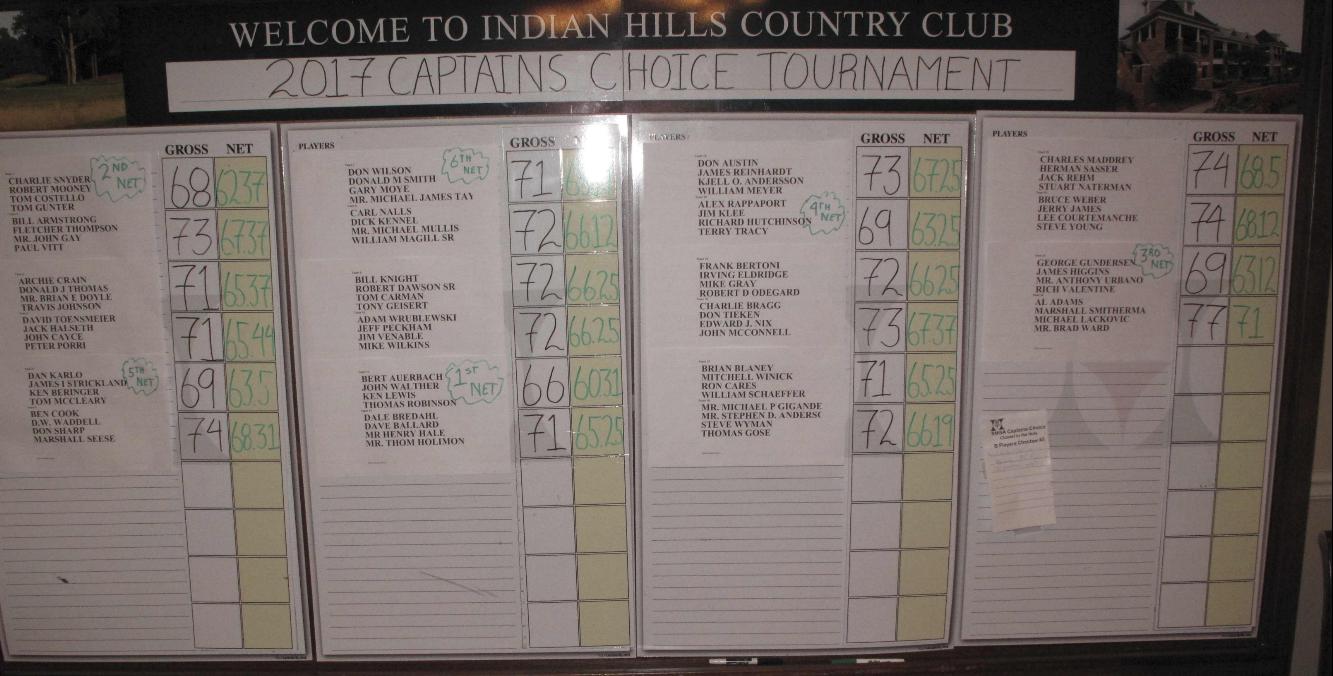 WELCOME TO INDIAN HILLS COUNTRY CLUB
2017 CAPTAINS CHOICE TOURNAMENT
GROSS NET
CHARLIE SNYDER
ROBERT MOONEY
TOM COSTELLO
TOM GUNTER
2ND NET
68 62.37
BILL ARMSTRONG
FLETCHER THOMPSON
MR. JOHN GAY
PAUL VITT
73 67.37
ARCHIE CRAIN
DONALD J THOMAS
MR. BRIAN E DOYLE
TRAVIS JOHNSON
71 65.37
DAVID TOENSMEIER
JACK HALSETH
JOHN CAYCE
PETER PORRI
71 65.44
DAN KARLO
JAMES I STRICKLAND
KEN BERINGER
TOM MCCLEARY
5TH NET
69 63.5
BEN COOK
D.W. WADDELL
DON SHARP
MARSHALL SEESE
74 68.31
PLAYERS
GROSS NET
DON WILSON
DONALD M SMITH
GARY MOYE
MR. MICHAEL JAMES TAY
6TH NET
71
CARL NALLS
DICK KENNEL
MR. MICHAEL MULLIS
WILLIAM MAGILL SR
72 66.12
BILL KNIGHT
ROBERT DAWSON SR
TOM CARMAN
TONY GEISERT
72 66.25
ADAM WRUBLEWSKI
JEFF PECKHAM
JIM VENABLE
MIKE WILKINS
72 66.25
BERT AUERBACH
JOHN WALTHER
KEN LEWIS
THOMAS ROBINSON
1ST NET
66 60.31
DALE BREDAHL
DAVE BALLARD
MR HENRY HALE
MR. THOM HOLIMON
71 65.25
PLAYERS
GROSS NET
DON AUSTIN
JAMES REINHARDT
KJELL O. ANDERSSON
WILLIAM MEYER
73 67.25
ALEX RAPPAPORT
JIM KLEE
RICHARD HUTCHINSON
TERRY TRACY
4TH NET
69 63.25
FRANK BERTONI
IRVING ELDRIDGE
MIKE GRAY
ROBERT D ODEGARD
72 66.25
CHARLIE BRAGG
DON TIEKEN
EDWARD J. NIX
JOHN MCCONNELL
73 67.37
BRIAN BLANEY
MITCHELL WINICK
RON CARES
WILLIAM SCHAEFFER
71 65.25
MR. MICHAEL P GIGANDE
MR. STEPHEN D. ANDERSC
STEVE WYMAN
THOMAS GOSE
72 66.19
PLAYERS
GROSS NET
CHARLES MADDREY
HERMAN SASSER
JACK REHM
STUART NATERMAN
74 68.5
BRUCE WEBER
JERRY JAMES
LEE COURTEMANCHE
STEVE YOUNG
74 68.12
GEORGE GUNDERSEN
JAMES HIGGINS
MR. ANTHONY URBANO
RICH VALENTINE
3RD NET
69 63.12
AL ADAMS
MARSHALL SMITHERMA
MICHAEL LACKOVIC
MR. BRAD WARD
77 71
Captains Choice